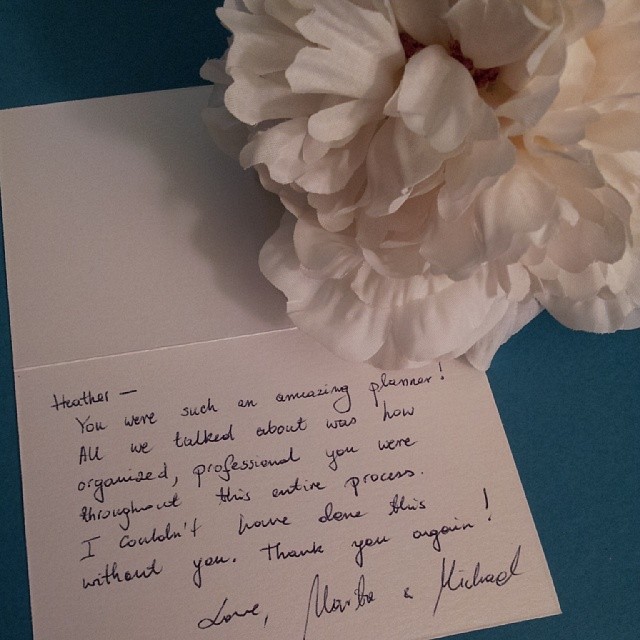 Heather —
You were such an amazing planner!
All we talked about was how
organized, professional you were
throughout this entire process.
I couldn't have done this
without you. Thank you again!
Love, & Michael